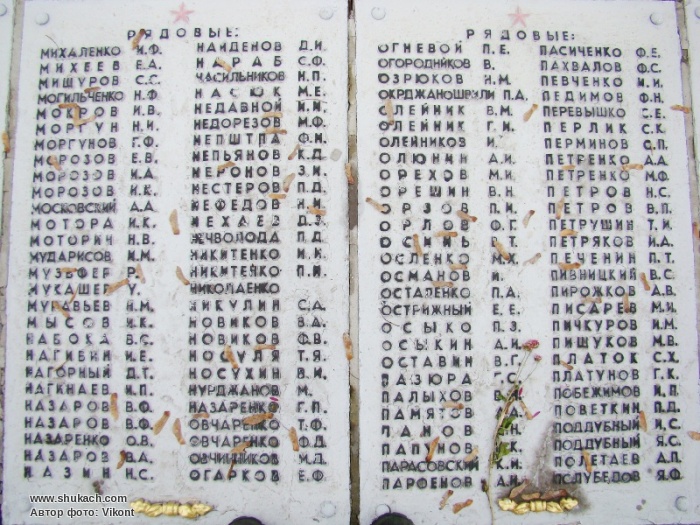 РЯДОВЫЕ:
МИХАЛЕНКО И.Ф.
МИХЕЕВ Е.А.
МИЩУРОВ С.С.
МОГИЛЬЧЕНКО Н.Ф.
МОКРОВ И.В.
МОРГУН Н.И.
МОРГУНОВ Г.Ф.
МОРОЗОВ Е.В.
МОРОЗОВ И.А.
МОРОЗОВ И.К.
МОСКОВСКИЙ А.А.
МОТОРА И.К.
МОТОРИН Н.В.
МУДАРИСОВ И.М.
МУЗАФЕР Р.
МУКАШЕВ У.
МУРАВЬЕВ Н.М.
МЫСОВ И.К.
НАБОКА В.С.
НАГИБИН И.Е.
НАГОРНЫЙ Д.Т.
НАГИНАЕВ И.П.
НАЗАРОВ В.Ф.
НАЗАРОВ В.Ф.
НАЗАРЕНКО О.В.
НАЗАРОВ В.А.
НАЗИН Н.С.
НАЙДЕНОВ Д.И.
НАРАБ С.Ф.
ЧАСИЛЬНИКОВ Н.П.
НАСЮК М.Е.
НЕДАВНОЙ И.И.
НЕДОРЕЗОВ М.Ф.
НЕПШТРА Ф.И.
НЕПЬЯНОВ К.Д.
НЕРОНОВ З.И.
НЕСТЕРОВ П.Д.
НЕФЕДОВ Н.И.
НЕХАЕВ Д.З.
НЕЧВОЛОДА П.Д.
НИКИТЕНКО И.К.
НИКИТЕЙКО П.И.
НИКОЛАЕНКО
НИКУЛИН С.Д.
НОВИКОВ В.А.
НОВИКОВ Ф.В.
НОСУЛЯ Т.Я.
НОСУХИН В.И.
НУРДЖАНОВ М.
НАЗАРЕНКО Г.П.
ОВЧАРЕНКО Т.Ф.
ОВЧАРЕНКО Ф.Д.
ОВЧИННИКОВ М.Д.
ОГАРКОВ Е.Ф.
РЯДОВЫЕ:
ОГНЕВОЙ П.Е.
ОГОРОДНИКОВ В.
ОЗРЮКОВ Н.М.
ОКРДЖАНОШВИЛИ П.А.
ОЛЕЙНИК В.М.
ОЛЕЙНИК Г.И.
ОЛЕЙНИКОВ И.
ОЛЮНИН А.И.
ОРЕХОВ М.И.
ОРЕШИН В.Н.
ОРЗОВ П.И.
ОРЛОВ Ф.Г.
ОСИПЬ Т.
ОСЛЕНКО М.Х.
ОСМАНОВ И.
ОСТАПЕНКО П.А.
ОСТРИЖНЫЙ Е.Е.
ОСЫКО П.З.
ОСЫКИН А.И.
ОСТАВИН В.Г.
ПАЗЮРА Г.С.
ПАЛЫХОВ В.
ПАМЯТОВ А.А.
ПАНОВ Н.
ПАПУНОВ К.
ПАРАСОВСКИЙ К.И.
ПАРФЕНОВ А.И.
ПАСИЧЕНКО Ф.Е.
ПАХВАЛОВ Ф.С.
ПЕВЧЕНКО И.И.
ПЕДИМОВ Ф.Н.
ПЕРЕВЫШКО Е.Е.
ПЕРЛИК С.К.
ПЕРМИНОВ О.П.
ПЕТРЕНКО А.А.
ПЕТРЕНКО М.Ф.
ПЕТРОВ Н.С.
ПЕТРОВ В.П.
ПЕТРУШИН Т.И.
ПЕТРЯКОВ И.А.
ПЕЧЕНИН П.Т.
ПИВНИЦКИЙ В.С.
ПИРОЖКОВ А.В.
ПИСАРЕВ М.И.
ПИЧКУРОВ И.М.
ПИЩУКОВ М.М.
ПЛАТОК С.Х.
ПЛАТУНОВ Г.К.
ПОБЕЖИМОВ И.П.
ПОВЕТКИН П.Д.
ПОДДУБНЫЙ И.С.
ПОДДУБНЫЙ Я.С.
ПОЛЕТАЕВ А.П.
ПОЛУБЕДОВ Я.Ф.
www.shukach.com
Автор фото: Vikont